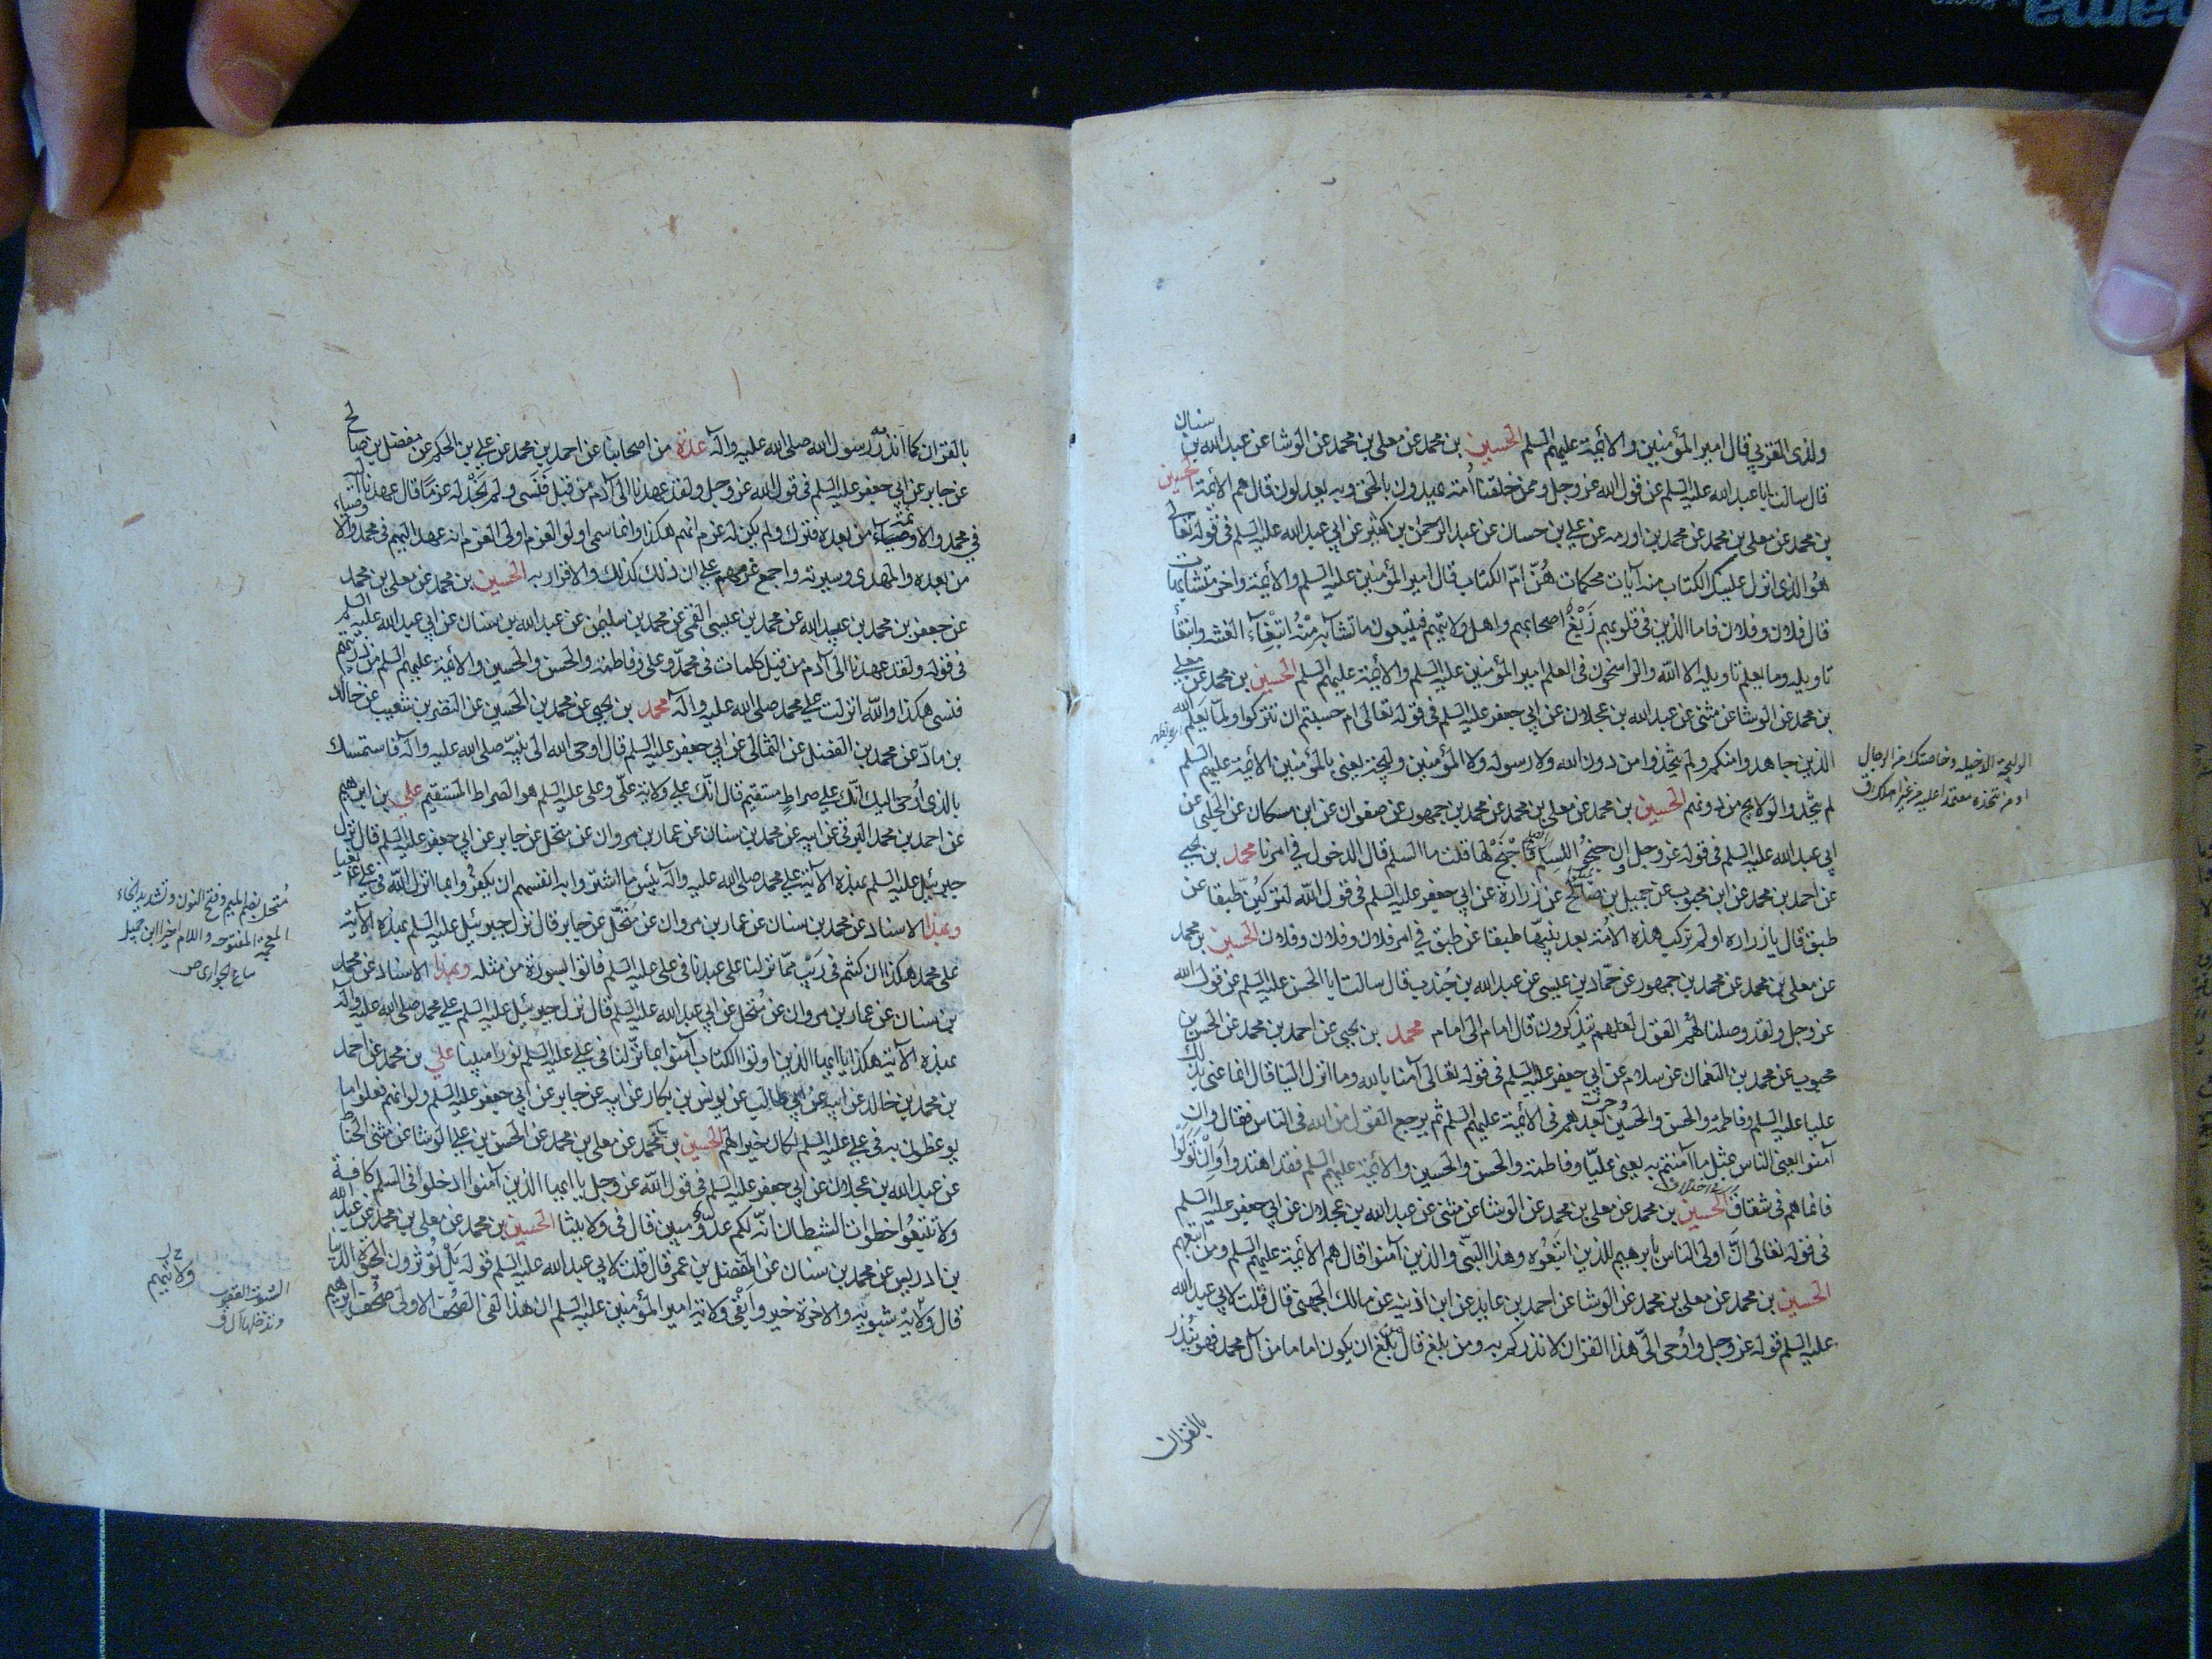 ولذى القربى قال امير المؤمنين والأئمة عليهم السلم الحسين بن محمد عن معلى بن محمد عن الوشا عن عبد الله بن سنان
قال سالت ابا عبد الله عليه السلم عن قول الله عز وجل وممن خلقنا أمة يهدون بالحق وبه يعدلون قال هم الأئمة الحسين
بن محمد عن معلى بن محمد عن محمد بن اورمه عن علي بن حسان عن عبد الرحمن بن كثير عن ابي عبد الله عليه السلم فى قوله تعالى
هو الذى انزل عليك الكتاب منه آيات محكمات هنّ امّ الكتاب قال امير المؤمنين عليه السلم والأئمة واخر متشابهات
قال فلان وفلان فاما الذين فى قلوبهم زَيْغٌ اصحابهم واهل ولايتهم فيتبعون ما تشابه منه ابتغاء الفتنه وابتغاء
تاويله وما يعلم تاويله الا الله والراسخون فى العلم امير المؤمنين عليه السلم والأئمة عليهم السلم الحسين بن محمد عن معلى
بن محمد عن الوشا عن مثنى عن عبد الله بن عجلان عن ابي جعفر عليه السلم فى قوله تعالى ام حسبتم ان تتركوا ولمّا يعلم الله
الذين جاهدوا منكم ولم يتخذوا من دون الله ولا رسوله ولا المؤمنين وليجة يعنى بالمؤمنين الأئمة عليهم السلم
لم يتخذوا الولايج من دونهم الحسين بن محمد عن معلى بن محمد عن محمد بن جمهور عن صفوان عن ابن مسكان عن الحلبى عن
ابي عبد الله عليه السلم فى قوله عز وجل وان جنحوا للسلم فاجنح لها قلت ما السلم قال الدخول في امرنا محمد بن يحيى
عن احمد بن محمد عن ابن محبوب عن جميل بن صالح عن زرارة عن ابي جعفر عليه السلم فى قول الله لتركبن طبقا عن
طبق قال يا زراره اولم تركب هذه الامة بعد نبيها طبقا عن طبق في امر فلان وفلان وفلان الحسين بن محمد
عن معلى بن محمد عن محمد بن جمهور عن حمّاد بن عيسى عن عبد الله بن جندب قال سالت ابا الحسن عليه السلم عن قول الله
عز وجل ولقد وصلنا لهم القول لعلهم يتذكرون قال امام الى امام محمد بن يحيى عن احمد بن محمد عن الحسن بن
محبوب عن محمد بن النعمان عن سلام عن ابي جعفر عليه السلم فى قوله تعالى آمنا بالله وما انزل الينا قال انما عنى بذلك
عليا عليه السلم وفاطمة والحسن والحسين وجرت بعدهم فى الأئمة عليهم السلم ثم يرجع القول من الله فى الناس فقال وان
آمنوا يعنى الناس بمثل ما آمنتم به يعنى عليّا وفاطمة والحسن والحسين والأئمة عليهم السلم فقد اهتدوا وان تولوا
فانما هم فى شقاق الحسين بن محمد عن معلى بن محمد عن الوشا عن مثنى عن عبد الله بن عجلان عن ابي جعفر عليه السلم
فى قوله تعالى انّ اولى الناس بابرهيم للذين اتبعوه وهذا النبّى والذين آمنوا قال هم الأئمة عليهم السلم ومن اتبعهم
الحسين بن محمد عن معلى بن محمد عن الوشا عن احمد بن عايذ عن ابن اذينه عن مالك الجهنى قال قلت لابي عبد الله
عليه السلم قوله عز وجل واوحى الىّ هذا القرآن لانذركم به ومن بلغ قال من بلغ ان يكون اماما من آل محمد فهو ينذر
بالقران
الوليجة الدخيله وخاصتك من الرجال
او من تتخذه معتمدا عليه من غير اهلك ق
بالقران كما انذر به رسول الله صلى الله عليه وآله عدة من اصحابنا عن احمد بن محمد عن علي بن الحكم عن مفضل بن صالح
عن جابر عن ابي جعفر عليه السلم فى قول الله عز وجل ولقد عهدنا الى آدم من قبل فنسى ولم نجد له عزما قال عهدنا اليه
في محمد والأئمة من بعده فترك ولم يكن له عزم انهم هكذا وانما سمى اولو العزم اولى العزم انه عهد اليهم فى محمد والاوصياء
من بعده والمهدى وسيرته واجمع عزمهم على ان ذلك كذلك والاقرار به الحسين بن محمد عن معلى بن محمد
عن جعفر بن محمد بن عبيد الله عن محمد بن عيسى القمى عن محمد بن سليمن عن عبد الله بن سنان عن ابي عبد الله عليه السلم
فى قوله ولقد عهدنا الى آدم من قبل كلمات فى محمّد وعلى وفاطمة والحسن والحسين والأئمة عليهم السلم من ذريتهم
فنسى هكذا والله انزلت علي محمد صلى الله عليه وآله محمد بن يحيى عن محمد بن الحسين عن النضر بن شعيب عن خالد
بن مادّ عن محمد بن الفضل عن الثمالى عن ابي جعفر عليه السلم قال اوحى الله الى نبيه صلى الله عليه وآله فاستمسك
بالذى أوحى اليك انّك علي صراط مستقيم قال انّك علي ولاية علّى وعلى عليه السلم هو الصراط المستقيم علي بن ابرهيم
عن احمد بن محمد البرقى عن ابيه عن محمد بن سنان عن عمار بن مروان عن منخل عن جابر عن ابي جعفر عليه السلم قال نزل
جبرئيل عليه السلم بهذه الآية علي محمد صلى الله عليه وآله بئس ما اشتروا به انفسهم ان يكفروا بما انزل الله فى علي بغيا
وبهذا الاسناد عن محمد بن سنان عن عمار بن مروان عن منخّل عن جابر قال نزل جبرئيل عليه السلم بهذه الآية
على محمد هكذا ان كنتم فى ريب ممّا نزلنا على عبدنا فى على عليه السلم فاتوا بسورة من مثله وبهذا الاسناد عن محمد
بن سنان عن عمار بن مروان عن منخل عن ابي عبد الله عليه السلم قال نزل جبرئيل عليه السلم علي محمد صلى الله عليه وآله
بهذه الآية هكذا يا ايها الذين اوتوا الكتاب آمنوا بما نزّلنا فى علي عليه السلم نورا مبينا علي بن محمد عن احمد
بن محمد بن خالد عن ابيه عن ابي طالب عن يونس بن بكار عن ابيه عن جابر عن ابي جعفر عليه السلم ولو انهم فعلوا ما
يوعظون به فى علي عليه السلم لكان خيرا لهم الحسين بن محمد عن معلى بن محمد عن الحسن بن علي الوشا عن مثنى الحناط
عن عبد الله بن عجلان عن ابي جعفر عليه السلم فى قول الله عز وجل يا ايها الذين آمنوا ادخلوا فى السلم كافة
ولا تتبعوا خطوات الشيطان انّه لكم عدوّ مبين قال فى ولايتنا الحسين بن محمد عن معلى بن محمد عن عبد الله
بن ادريس عن محمد بن سنان عن المفضل بن عمر قال قلت لابي عبد الله عليه السلم قوله بل تؤثرون الحيوة الدنيا
قال ولاية شبويه والاخرة خير وابقى ولاية امير المؤمنين عليه السلم ان هذا لفى الصحف الاولى صحف ابرهيم
منخل بضم الميم وفتح النون وتشديد الخاء
المعجمة المفتوحه واللام اخيرا ابن جميل
بياع الجوارى صه
ولايتهم